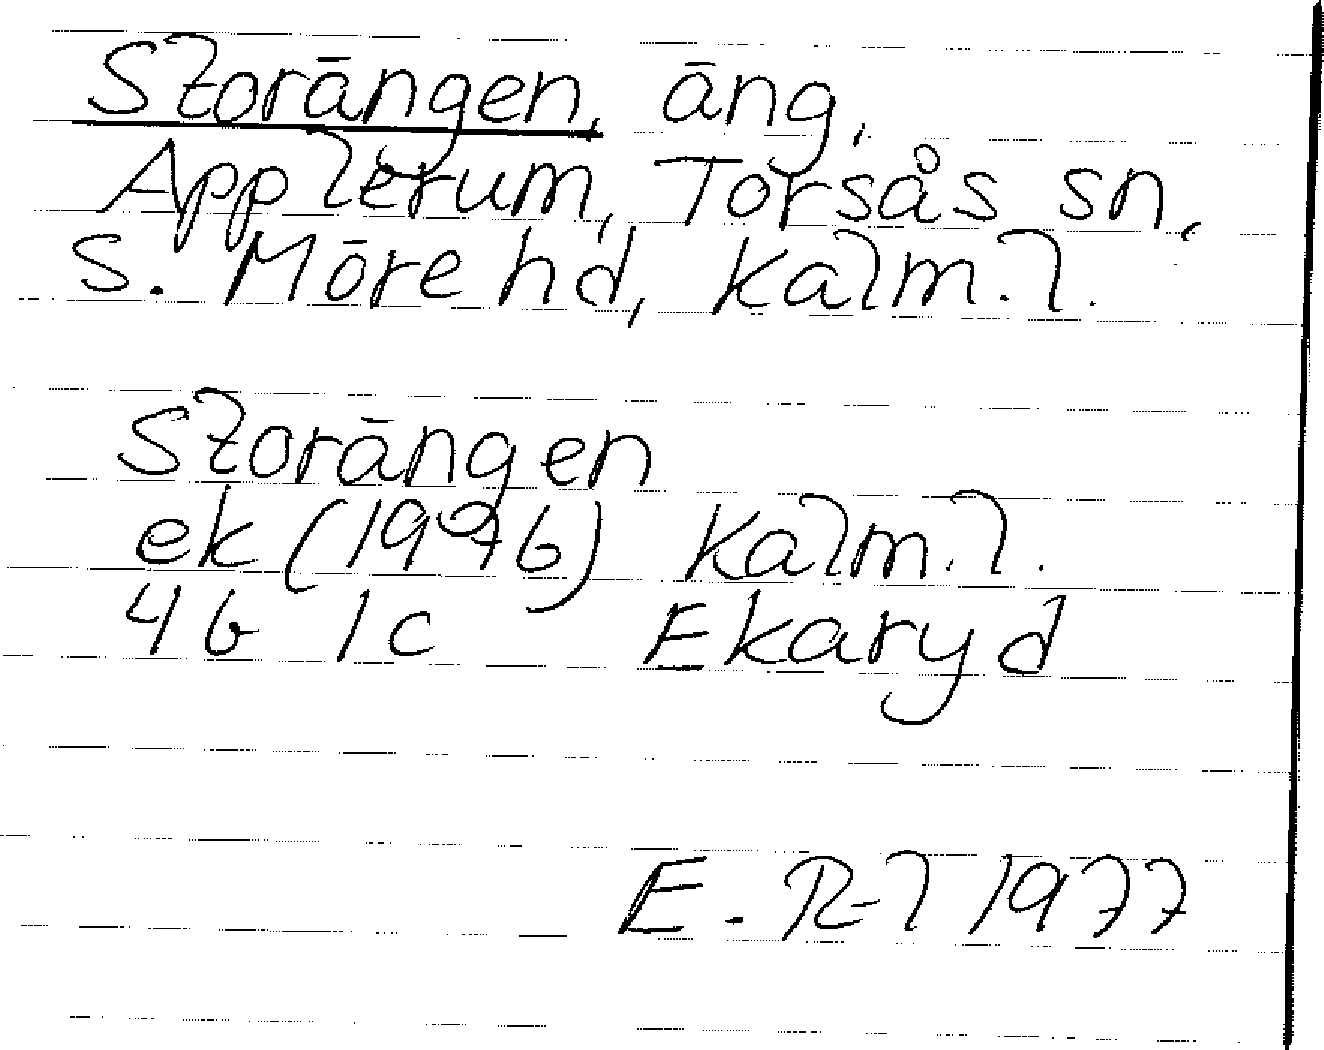 Storängen, äng,
Applerum, Torsås sn,
S. Möre hd, Kalm. l.
Storängen
ek (1946) Kalm. l.
4G 1c Ekaryd
E. R-l 1977